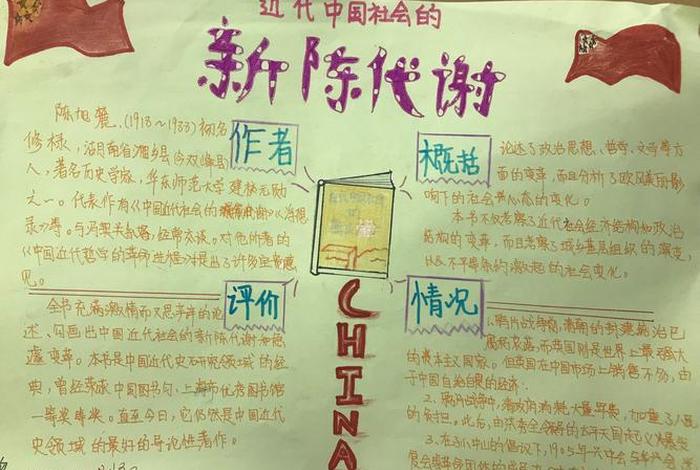 近代中国社会的
新陈代谢
作者
陈旭麓,(1918~1933)初名
修禄,湖南省湘乡县(今双峰县)
人,著名历史学家,华东师范大学建校元勋
之一。代表作有《中国近代社会的新陈代谢》《浮想
录》等。与冯契夫教授,经常交谈。对他所著的
《中国近代哲学的革命进程》提出了许多宝贵意
见。
概括
论述了政治思想、哲学、文学等方
面的变革,而且分析了欧风美雨影
响下的社会心态的变化。
本书不仅考察了近代社会经济结构和政治
结构的变革,而且考察了城乡基层组织的演变,
以及不平等条约激起的社会变化。
评价
全书充满激情而又思辨的论
述、勾画出中国近代社会的新陈代谢
变革。本书是中国近代史研究领域的经
典,曾经荣获中国图书奖、上海市优秀图书
一等奖等奖。直至今日,它仍然是中国近代
史领域的最好的导论性著作。
情况
1、鸦片战争前,清朝的封建统治已
而英国则是世界上最强大
的资本主义国家。但英国在中国市场上销售不
于中国自给自足的经济。
2、鸦片战争中,清政府消耗大量军费,加重了人民
的负担。此后,由洪秀全领导的太平天国起义
3、在孙中山的倡议下,1905年兴中会与华兴会、光
复会
CHINA